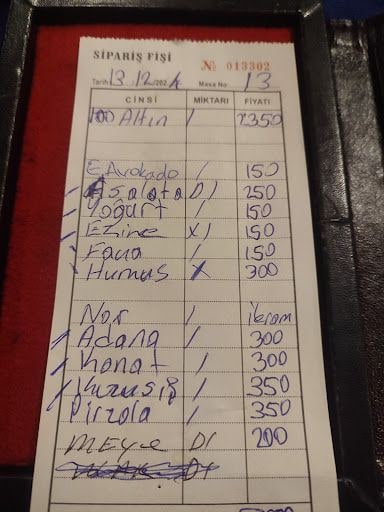 SİPARİŞ FİŞİ
№ 013302
Tarih 13/12/2024 Masa No: 13
CİNSİ MİKTARI FİYATI
100 Altın / 2350
E Avokado / 150
A Salata D1 250
Yoğurt / 150
Ezine X1 150
Fava / 150
Humus X 300
Nar / ikram
Adana / 300
Kanat / 300
Kuzu şiş / 350
Pirzola / 350
MEYve D1 200